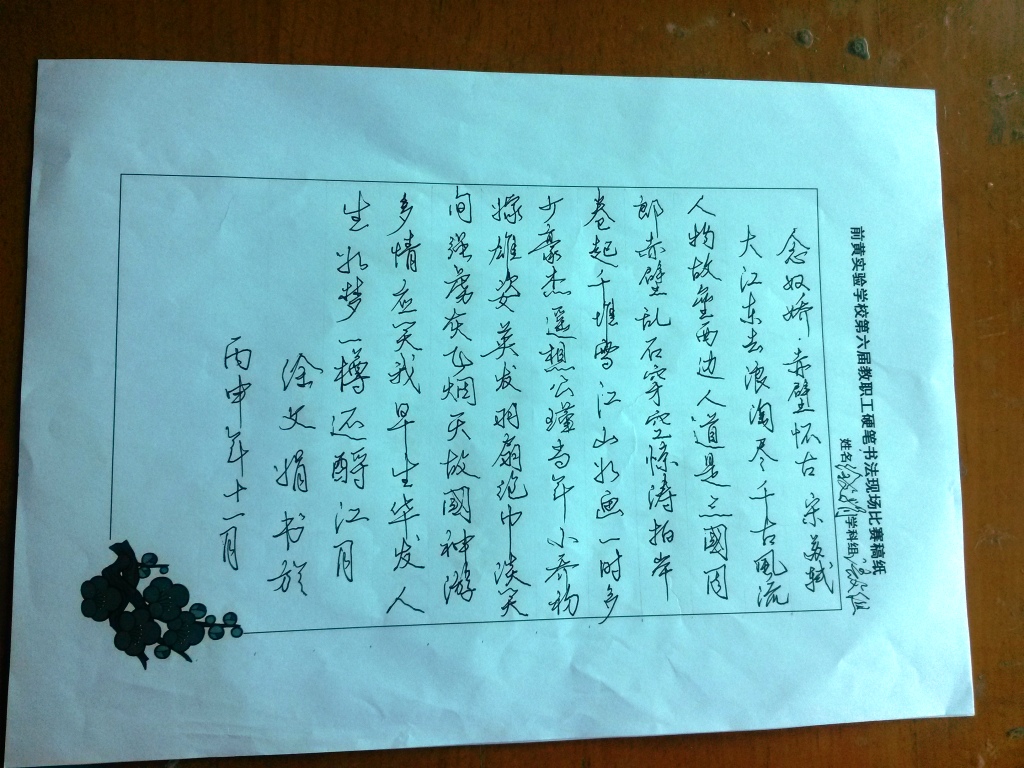 前黄实验学校第六届教职工硬笔书法现场比赛稿纸
姓名徐文娟学科组:语文组
念奴娇·赤壁怀古 宋 苏轼
大江东去浪淘尽千古风流
人物故垒西边人道是三國周
郎赤壁乱石穿空惊涛拍岸
卷起千堆雪江山如画一时多
少豪杰遥想公瑾当年小乔初
嫁雄姿英发羽扇纶巾淡笑
间强虏灰飞烟灭故國神游
多情应笑我早生华发人
生如梦一樽还酹江月
徐文娟书於
丙申年十一月